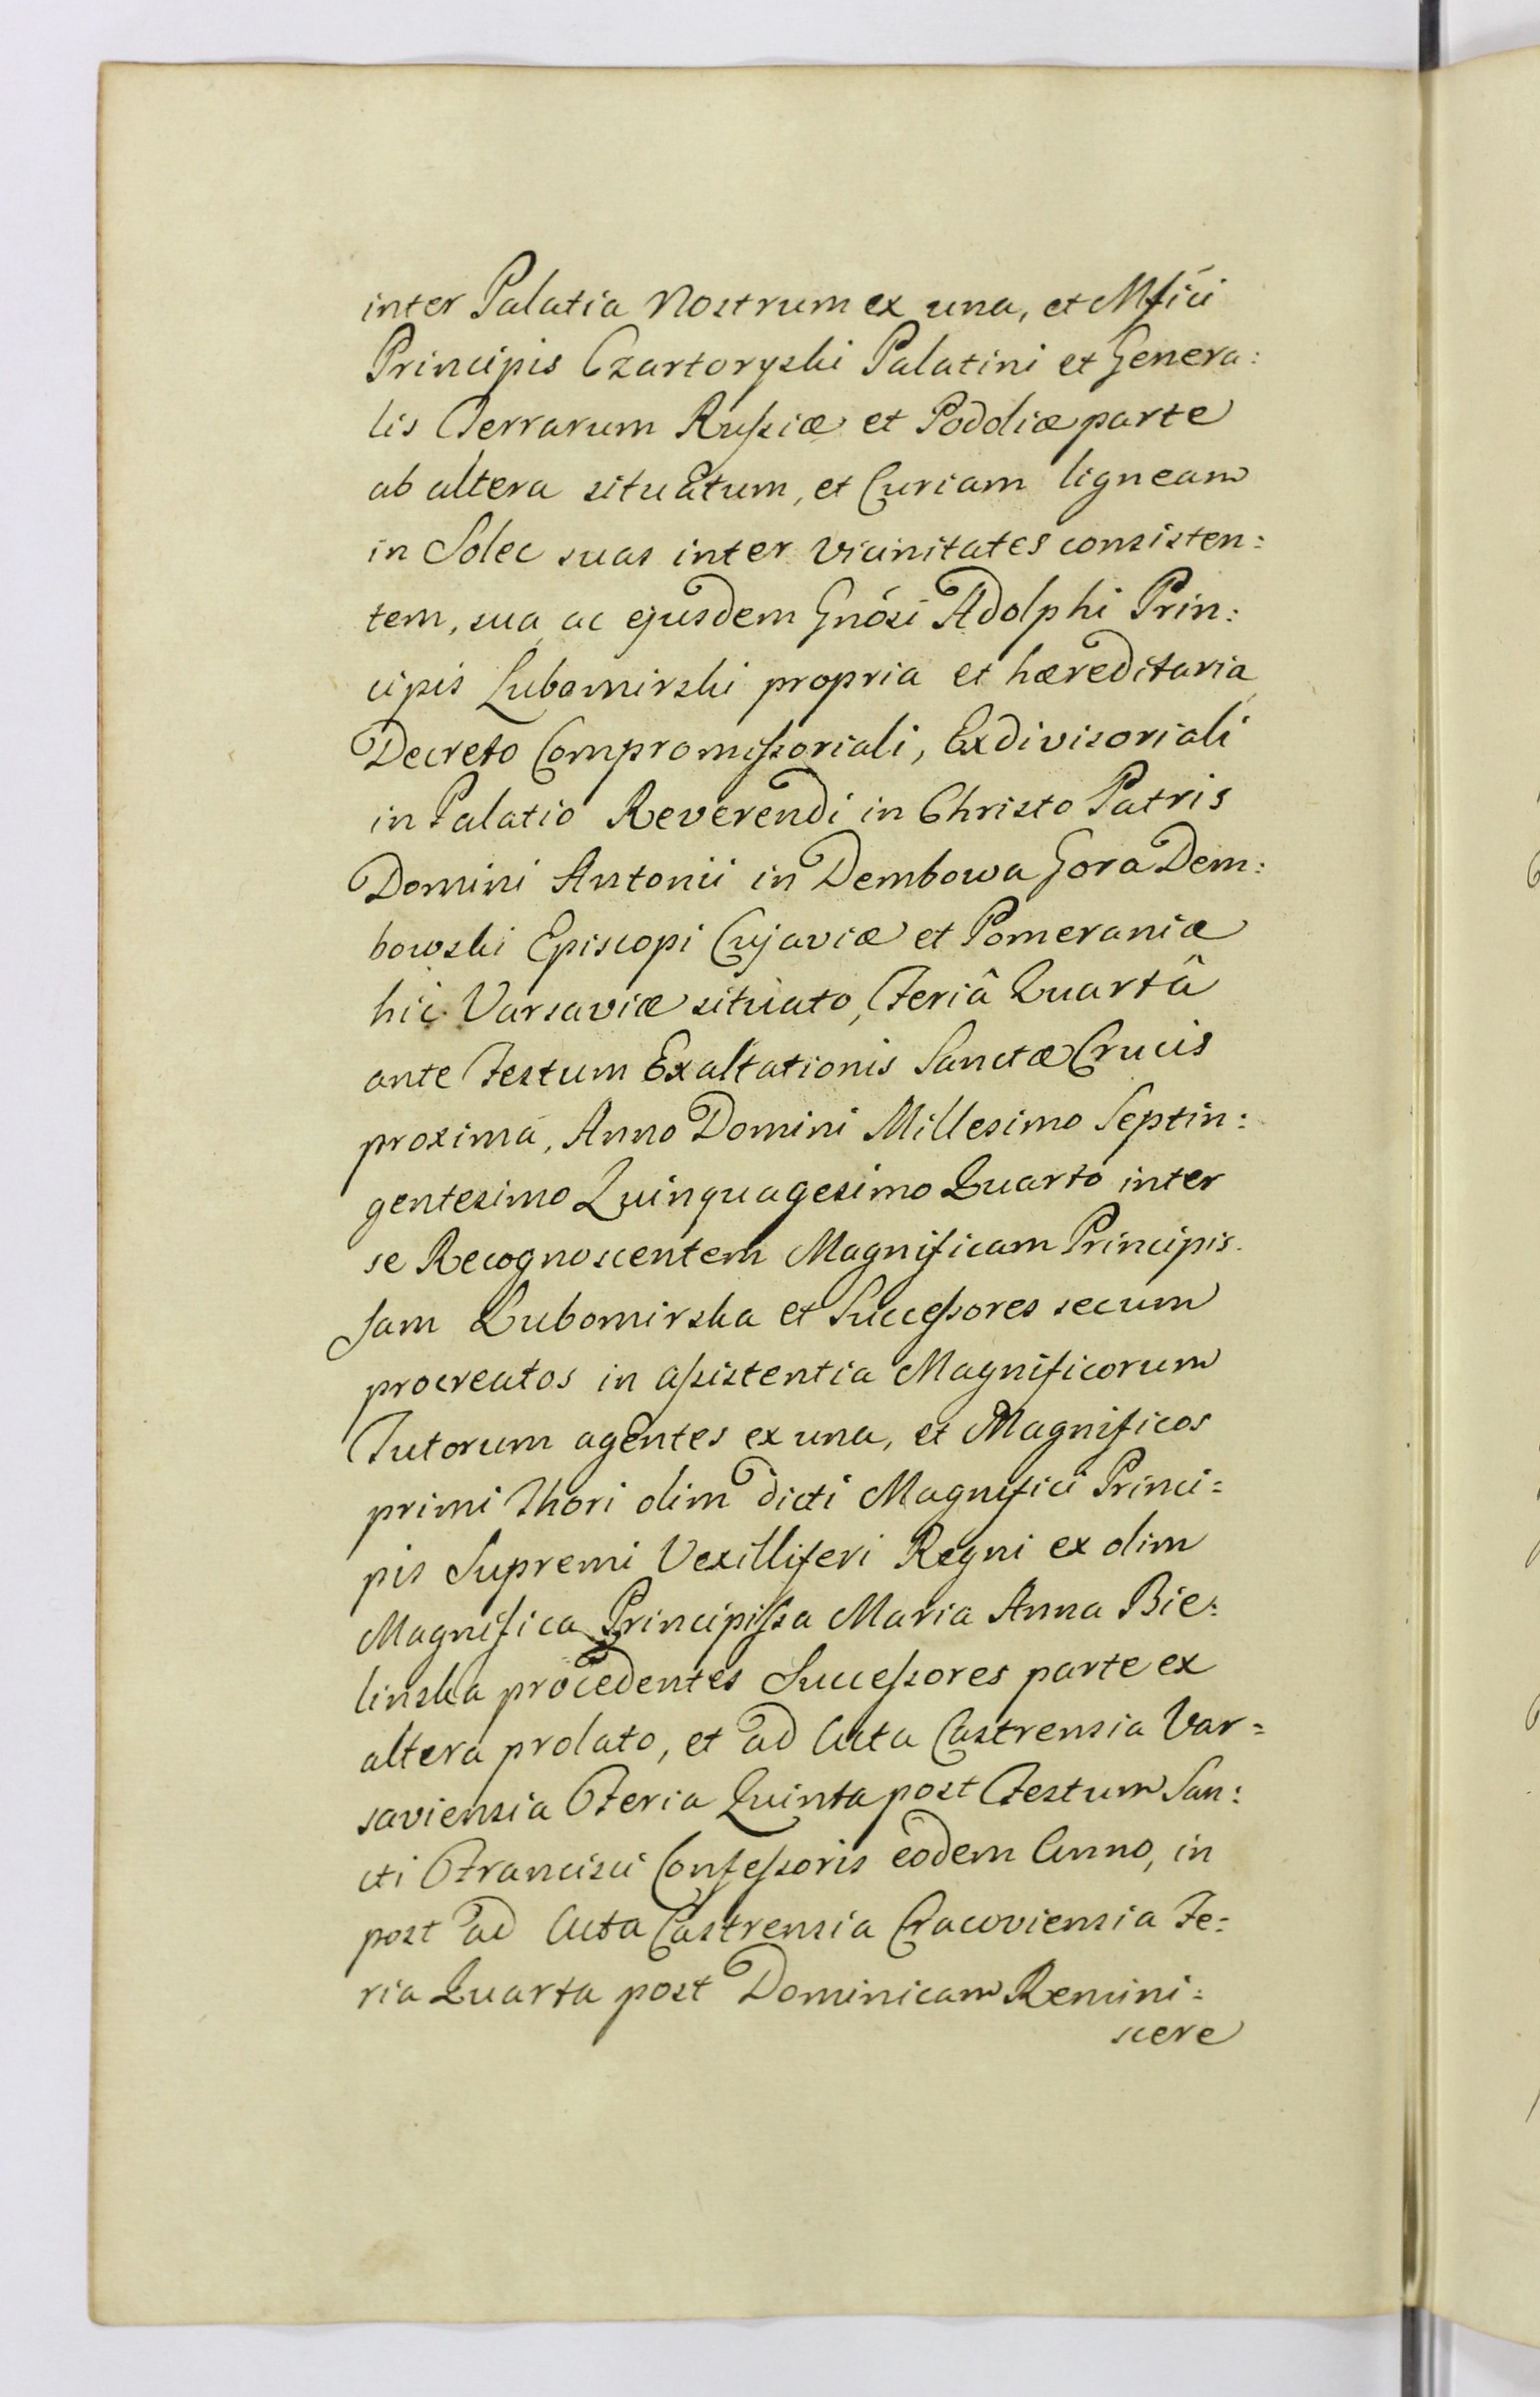 inter Palatia Nostrum ex una, et Mfici
Principis Czartoryski Palatini et Genera:
lis Terrarum Russiæ et Podoliæ parte
ab altera situatum, et Curiam ligneam
in Solec suas inter vicinitates consisten:
tem, sua ac ejusdem Gnósi Adolphi Prin:
cipis Lubomirski propria et hæreditaria
Decreto Compromissoriali, Exdivisoriali
in Palatio Reverendi in Christo Patris
Domini Antonii in Dembowa Gora Dem:
bowski Episcopi Cujaviæ et Pomeraniæ
hic Varsaviæ situato, Feriâ Quartâ
ante Festum Exaltationis Sanctæ Crucis
proxima, Anno Domini Millesimo Septin:
gentesimo Quinquagesimo Quarto inter
se Recognoscentem Magnificam Principis.
sam Lubomirska et Successores secum
procreatos in assistentia Magnificorum
Tutorum agentes ex una, et Magnificos
primi Thori olim dicti Magnifici Princi=
pis Supremi Vexilliferi Regni ex olim
Magnifica Principissa Maria Anna Bie:
linska procedentes Successores parte ex
altera prolato, et ad Acta Castrensia Var=
saviensia Feria Quinta post Festum San:
cti Francisci Confessoris eodem Anno, in
post ad Acta Castrensia Cracoviensia Fe=
ria Quarta post Dominicam Remini=
scere